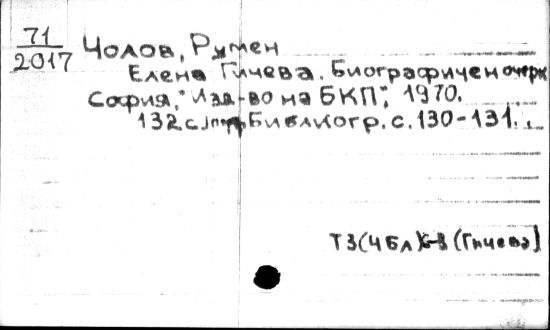 71
2017
Чолов, Румен
Елена Гичева. Биографичен очерк
София, "Изд-во на БКП", 1970.
132 с., Библиогр. с. 130-131.
Т3(4Бл)6-8 (Гичева)